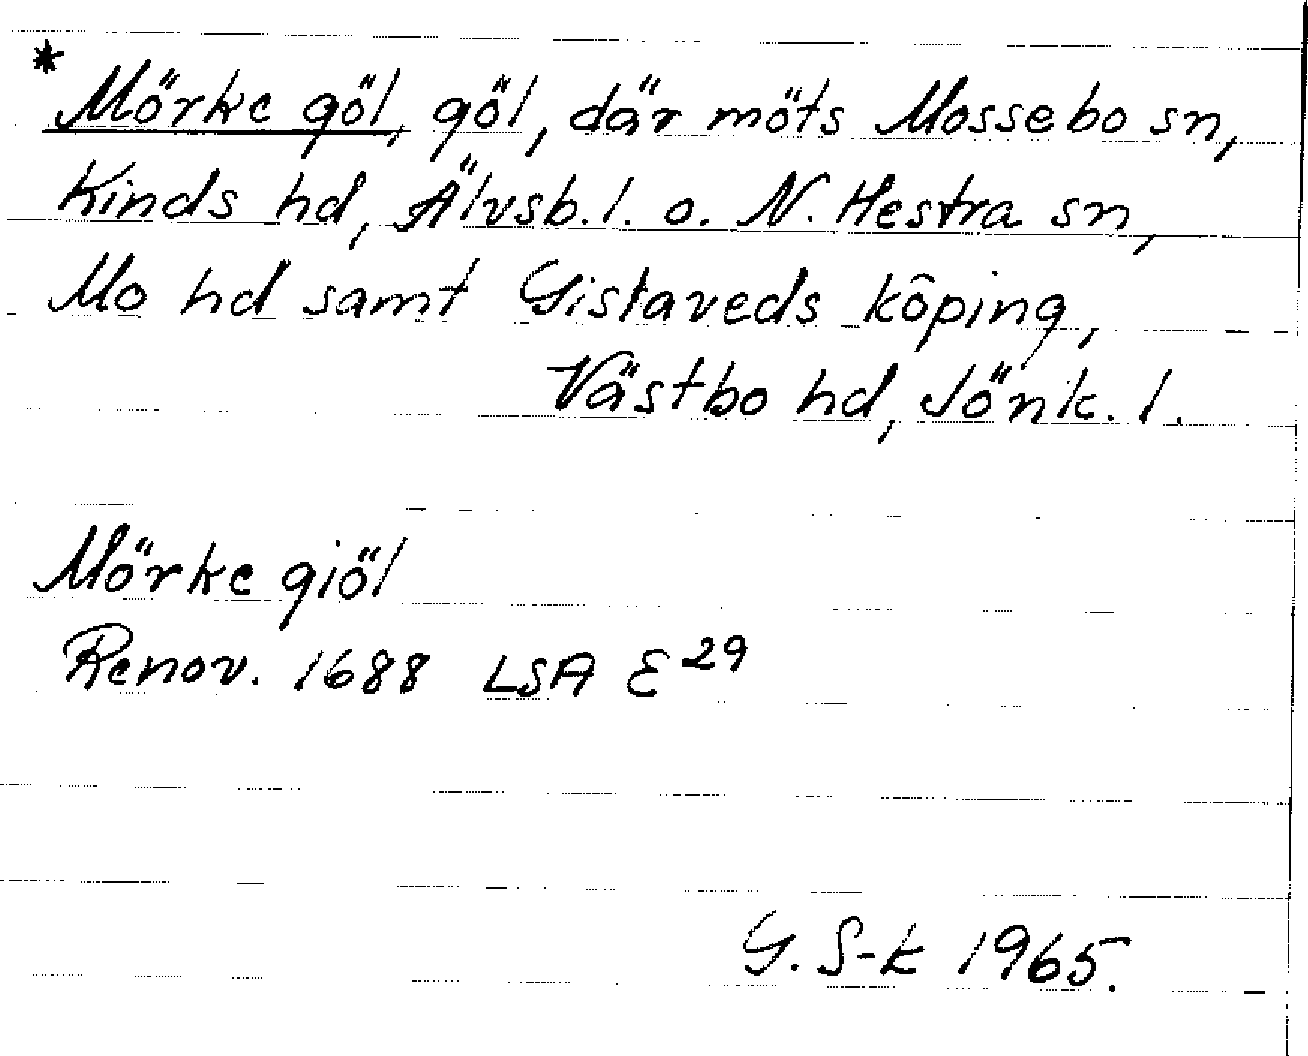 * Mörke göl, göl, där möts Mossebo sn,
Kinds hd, Älvsb. l. o. N. Hestra sn,
Mo hd samt Gislaveds köping,
Västbo hd, Jönk. l.
Mörke giöl
Renov. 1688 LSA E 29
G. S-k 1965.